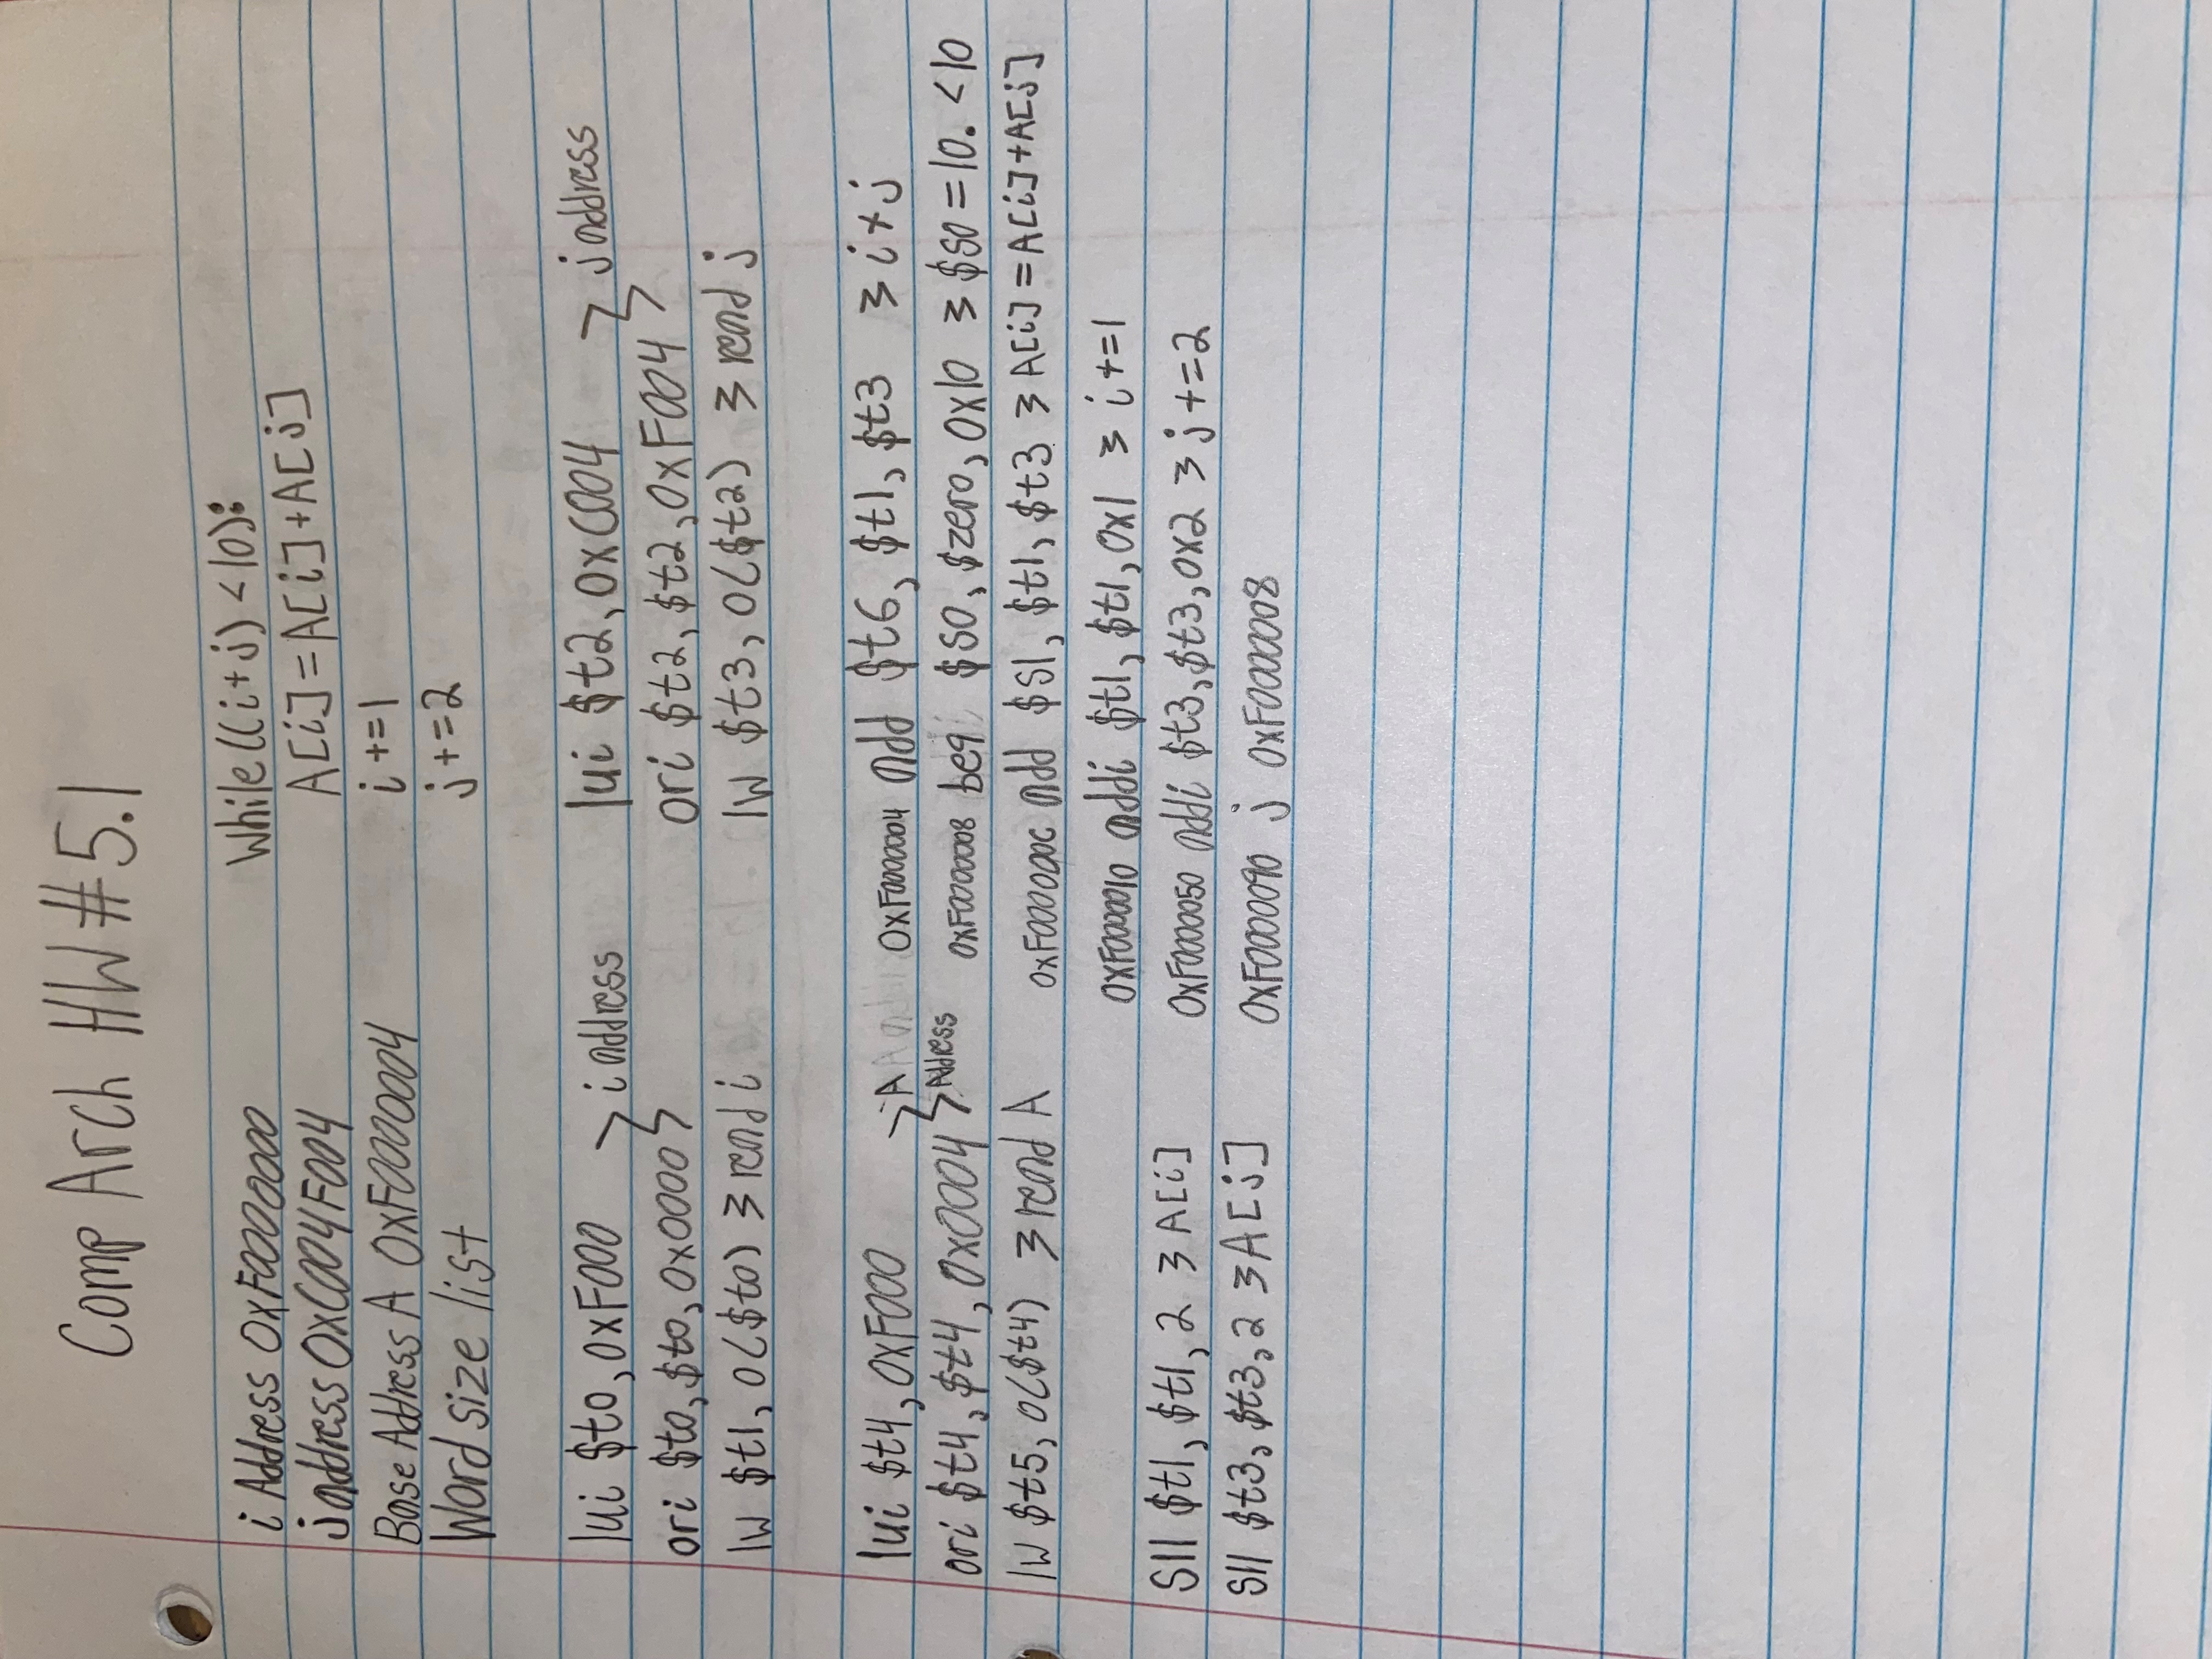 Comp Arch HW #5.1
i Address 0xF0000000
j address 0xC004F004
Base Address A 0xF0000004
Word size list
While ((i+j) < 10):
A[i] = A[i] + A[j]
i += 1
j += 2
lui $t0, 0xF000
ori $t0, $t0, 0x0000
i address
lw $t1, 0($t0) } read i
lui $t2, 0xC004
ori $t2, $t2, 0xF004
j address
lw $t3, 0($t2) } read j
lui $t4, 0xF000
ori $t4, $t4, 0x0004
A Address
lw $t5, 0($t4) } read A
Sll $t1, $t1, 2 } A[i]
Sll $t3, $t3, 2 } A[j]
0xF0000004 add $t6, $t1, $t3 } i + j
0xF0000008 beq $s0, $zero, 0x10 } $s0 = 10. < 10
0xF000000C add $s1, $t1, $t3 } A[i] = A[i] + A[j]
0xF0000010 addi $t1, $t1, 0x1 } i += 1
0xF0000050 addi $t3, $t3, 0x2 } j += 2
0xF0000090 j 0xF0000008